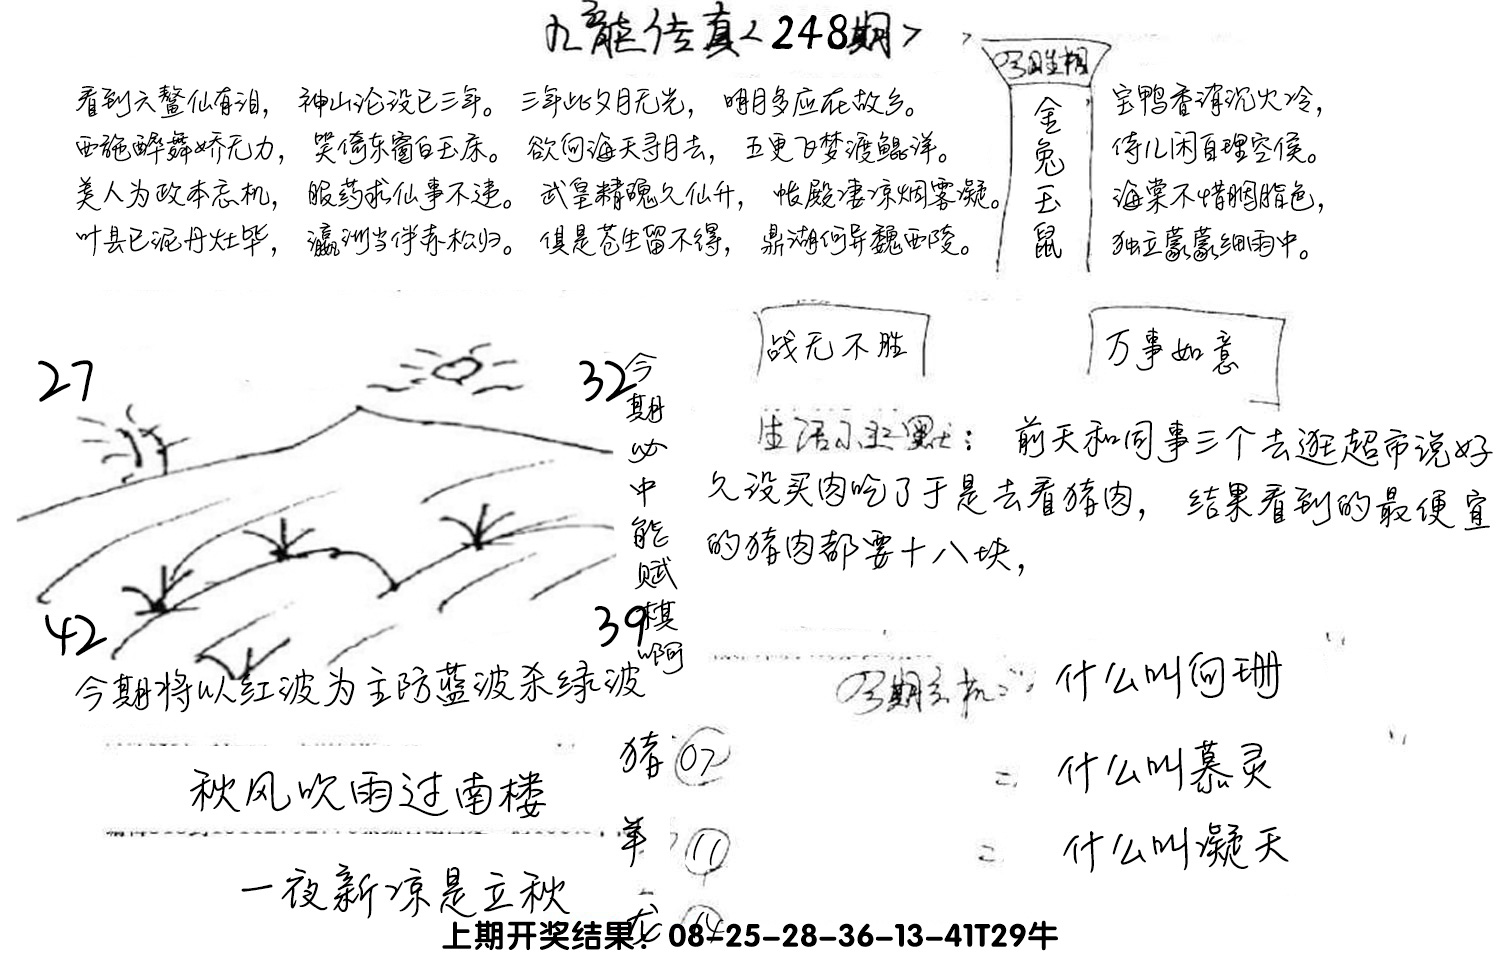 九龍传真<248期>
看到六鳌仙有泪，神山沦没已三年。三年此夕月无光，明月多应在故乡。
西施醉舞娇无力，笑倚东窗白玉床。欲向海天寻月去，五更飞梦渡鲲洋。
美人为政本忘机，服药求仙事不违。武皇精魄久仙升，帐殿凄凉烟雾凝。
叶县已泥丹灶毕，瀛洲当伴赤松归。俱是苍生留不得，鼎湖何异魏西陵。
今期生相
金兔玉鼠
宝鸭香消沉火冷，
侍儿闲自理空侯。
海棠不惜胭脂色，
独立蒙蒙细雨中。
战无不胜
万事如意
27
32
42
39
今期必中能赋棋啊
生活小幽默：前天和同事三个去逛超市说好
久没买肉吃了于是去看猪肉，结果看到的最便宜
的猪肉都要十八块，
今期将以红波为主防蓝波杀绿波
今期玄机 什么叫向珊
= 什么叫慕灵
= 什么叫凝天
秋风吹雨过南楼
一夜新凉是立秋
猪 07
羊 11
上期开奖结果：08-25-28-36-13-41T29牛